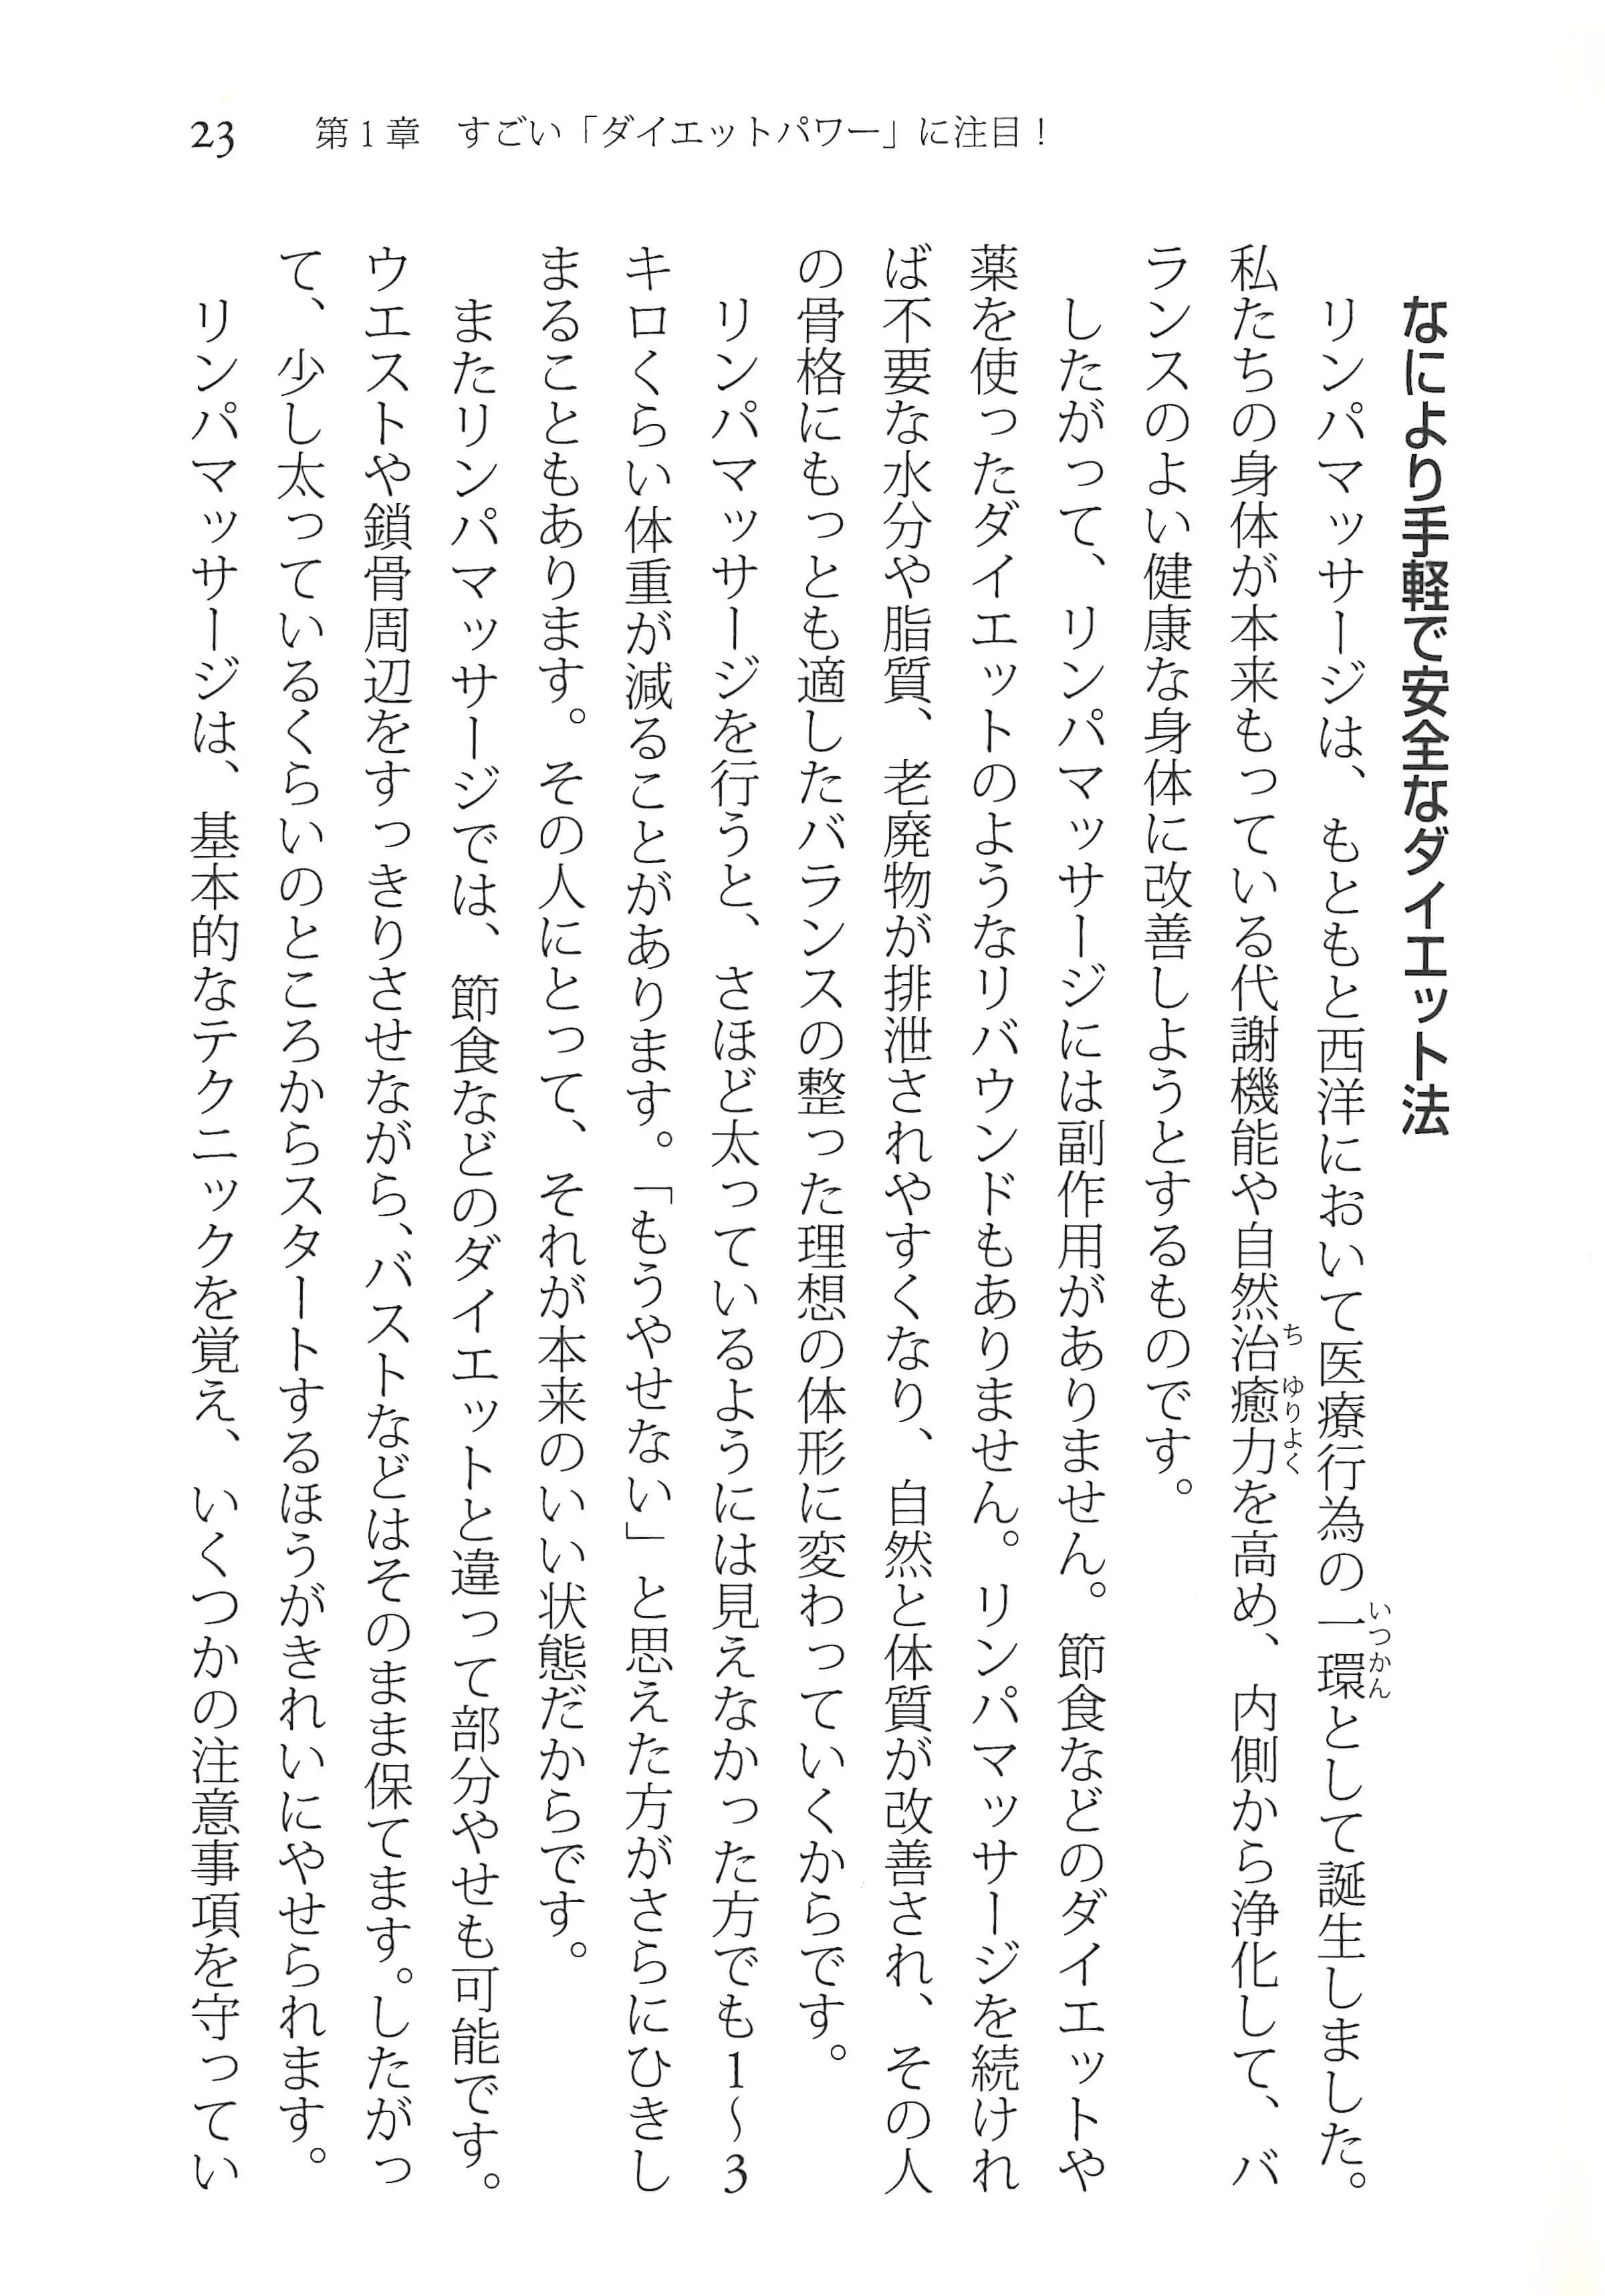 23 第1章 すごい「ダイエットパワー」に注目！
なにより手軽で安全なダイエット法
リンパマッサージは、もともと西洋において医療行為の一環として誕生しました。
私たちの身体が本来もっている代謝機能や自然治癒力を高め、内側から浄化して、バ
ランスのよい健康な身体に改善しようとするものです。
したがって、リンパマッサージには副作用がありません。節食などのダイエットや
薬を使ったダイエットのようなリバウンドもありません。リンパマッサージを続けれ
ば不要な水分や脂質、老廃物が排泄されやすくなり、自然と体質が改善され、その人
の骨格にもっとも適したバランスの整った理想の体形に変わっていくからです。
リンパマッサージを行うと、さほど太っているようには見えなかった方でも1〜3
キロくらい体重が減ることがあります。「もうやせない」と思えた方がさらにひきし
まることもあります。その人にとって、それが本来のいい状態だからです。
またリンパマッサージでは、節食などのダイエットと違って部分やせも可能です。
ウエストや鎖骨周辺をすっきりさせながら、バストなどはそのまま保てます。したがっ
て、少し太っているくらいのところからスタートするほうがきれいにやせられます。
リンパマッサージは、基本的なテクニックを覚え、いくつかの注意事項を守ってい